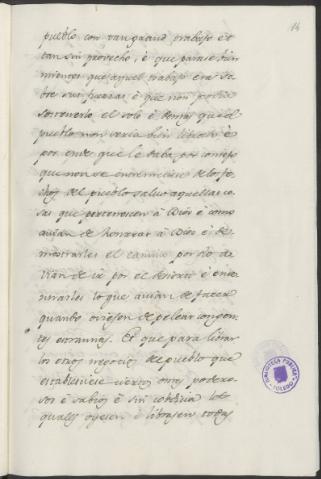 14
pueblo con tan grand trabajo è
tan sin provecho, è que parase bien
mientes que aquel trabajo era so-
bre sus fuerzas è que non podrie
sofrir el solo è demas que el
pueblo non seria bien librado è
por ende que le daba por consejo
que non se entremetiese de los fe-
chos del pueblo salvo aquellas co-
sas que pertenescen à Dios è como
avian de honrrar à Dios è de
mostrarles el camino por dò de
vian de ir por el desierto è ense-
ñarles lo que avian de facer
quando oviesen de pelear con gen-
tes estrannas. Et que para librar
los otros negocios de pueblo que
estableciese ciertos omes podero-
sos è sabios è sin cobdicia los
quales oyesen è librasen todos
BIBLIOTECA PUBLICA
TOLEDO